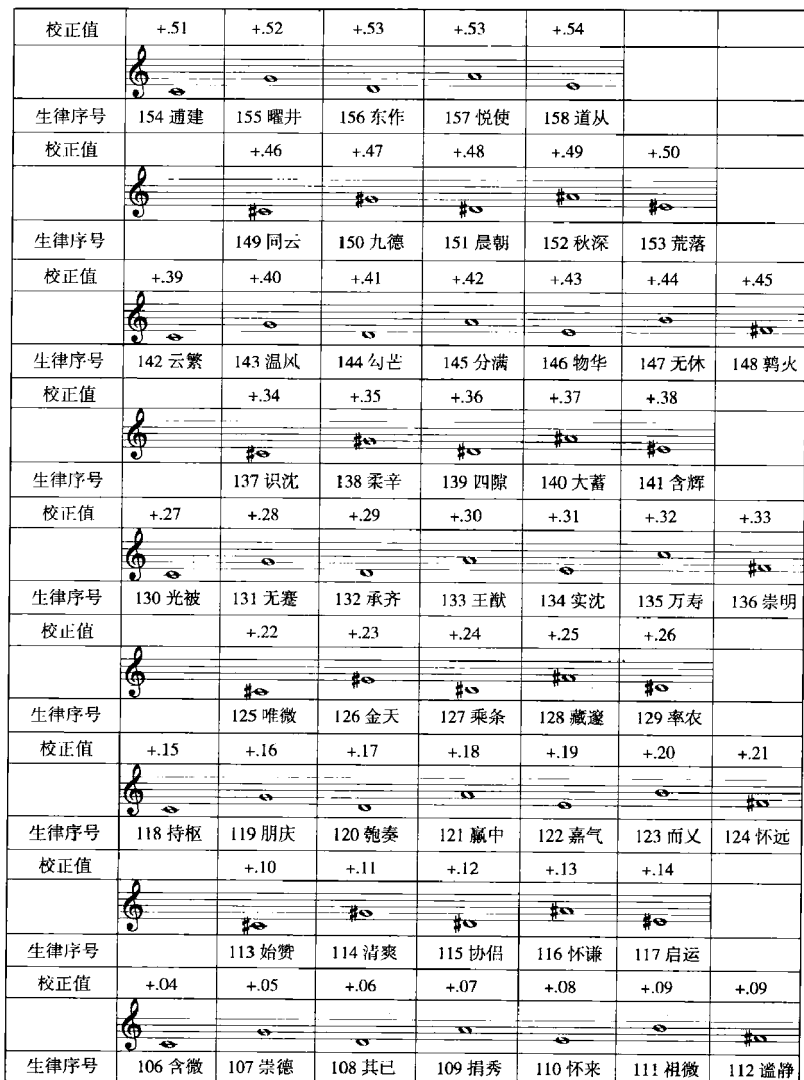 校正值 +.51 +.52 +.53 +.53 +.54
生律序号 154 逋建 155 曜井 156 东作 157 悦使 158 道从
校正值 +.46 +.47 +.48 +.49 +.50
生律序号 149 同云 150 九德 151 晨朝 152 秋深 153 荒落
校正值 +.39 +.40 +.41 +.42 +.43 +.44 +.45
生律序号 142 云繁 143 温风 144 勾芒 145 分满 146 物华 147 无休 148 鹑火
校正值 +.34 +.35 +.36 +.37 +.38
生律序号 137 识沈 138 柔辛 139 四隙 140 大蓄 141 含辉
校正值 +.27 +.28 +.29 +.30 +.31 +.32 +.33
生律序号 130 光被 131 无蹇 132 承齐 133 王猷 134 实沈 135 万寿 136 崇明
校正值 +.22 +.23 +.24 +.25 +.26
生律序号 125 唯微 126 金天 127 乘条 128 藏邃 129 率农
校正值 +.15 +.16 +.17 +.18 +.19 +.20 +.21
生律序号 118 持枢 119 朋庆 120 匏奏 121 嬴中 122 嘉气 123 而乂 124 怀远
校正值 +.10 +.11 +.12 +.13 +.14
生律序号 113 始赞 114 清爽 115 协侣 116 怀谦 117 启运
校正值 +.04 +.05 +.06 +.07 +.08 +.09 +.09
生律序号 106 含微 107 崇德 108 其已 109 捐秀 110 怀来 111 祖微 112 谧静